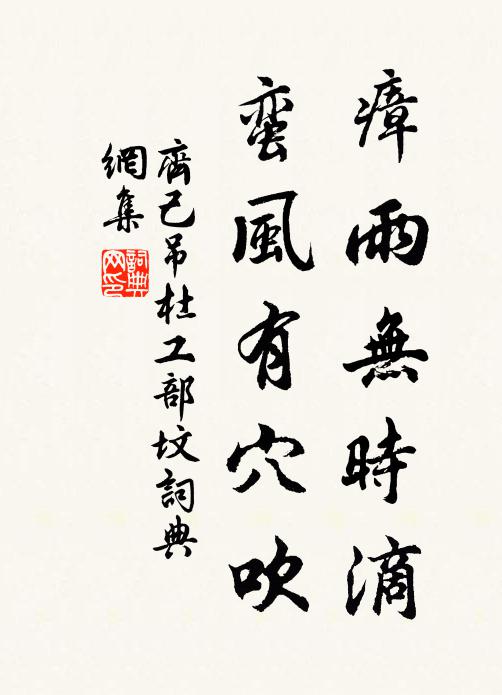 瘴雨無時滴
蛮風有穴吹
齊己吊杜工部坟詞典
網集
詞典
网印